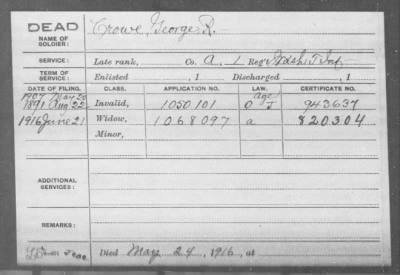 DEAD
NAME OF SOLDIER: Crowe, George R.
SERVICE: Late rank, Co. A, 1 Reg't Wash. T. Inf.
TERM OF SERVICE: Enlisted , 1 Discharged , 1
DATE OF FILING. CLASS. APPLICATION NO. LAW. CERTIFICATE NO.
1907 May 22 Age
1891 Aug 22 Invalid, 1050101 J 943637
1916 June 21 Widow, 1068097 a 820304
Minor,
ADDITIONAL SERVICES:
REMARKS:
Died May 24, 1916, at